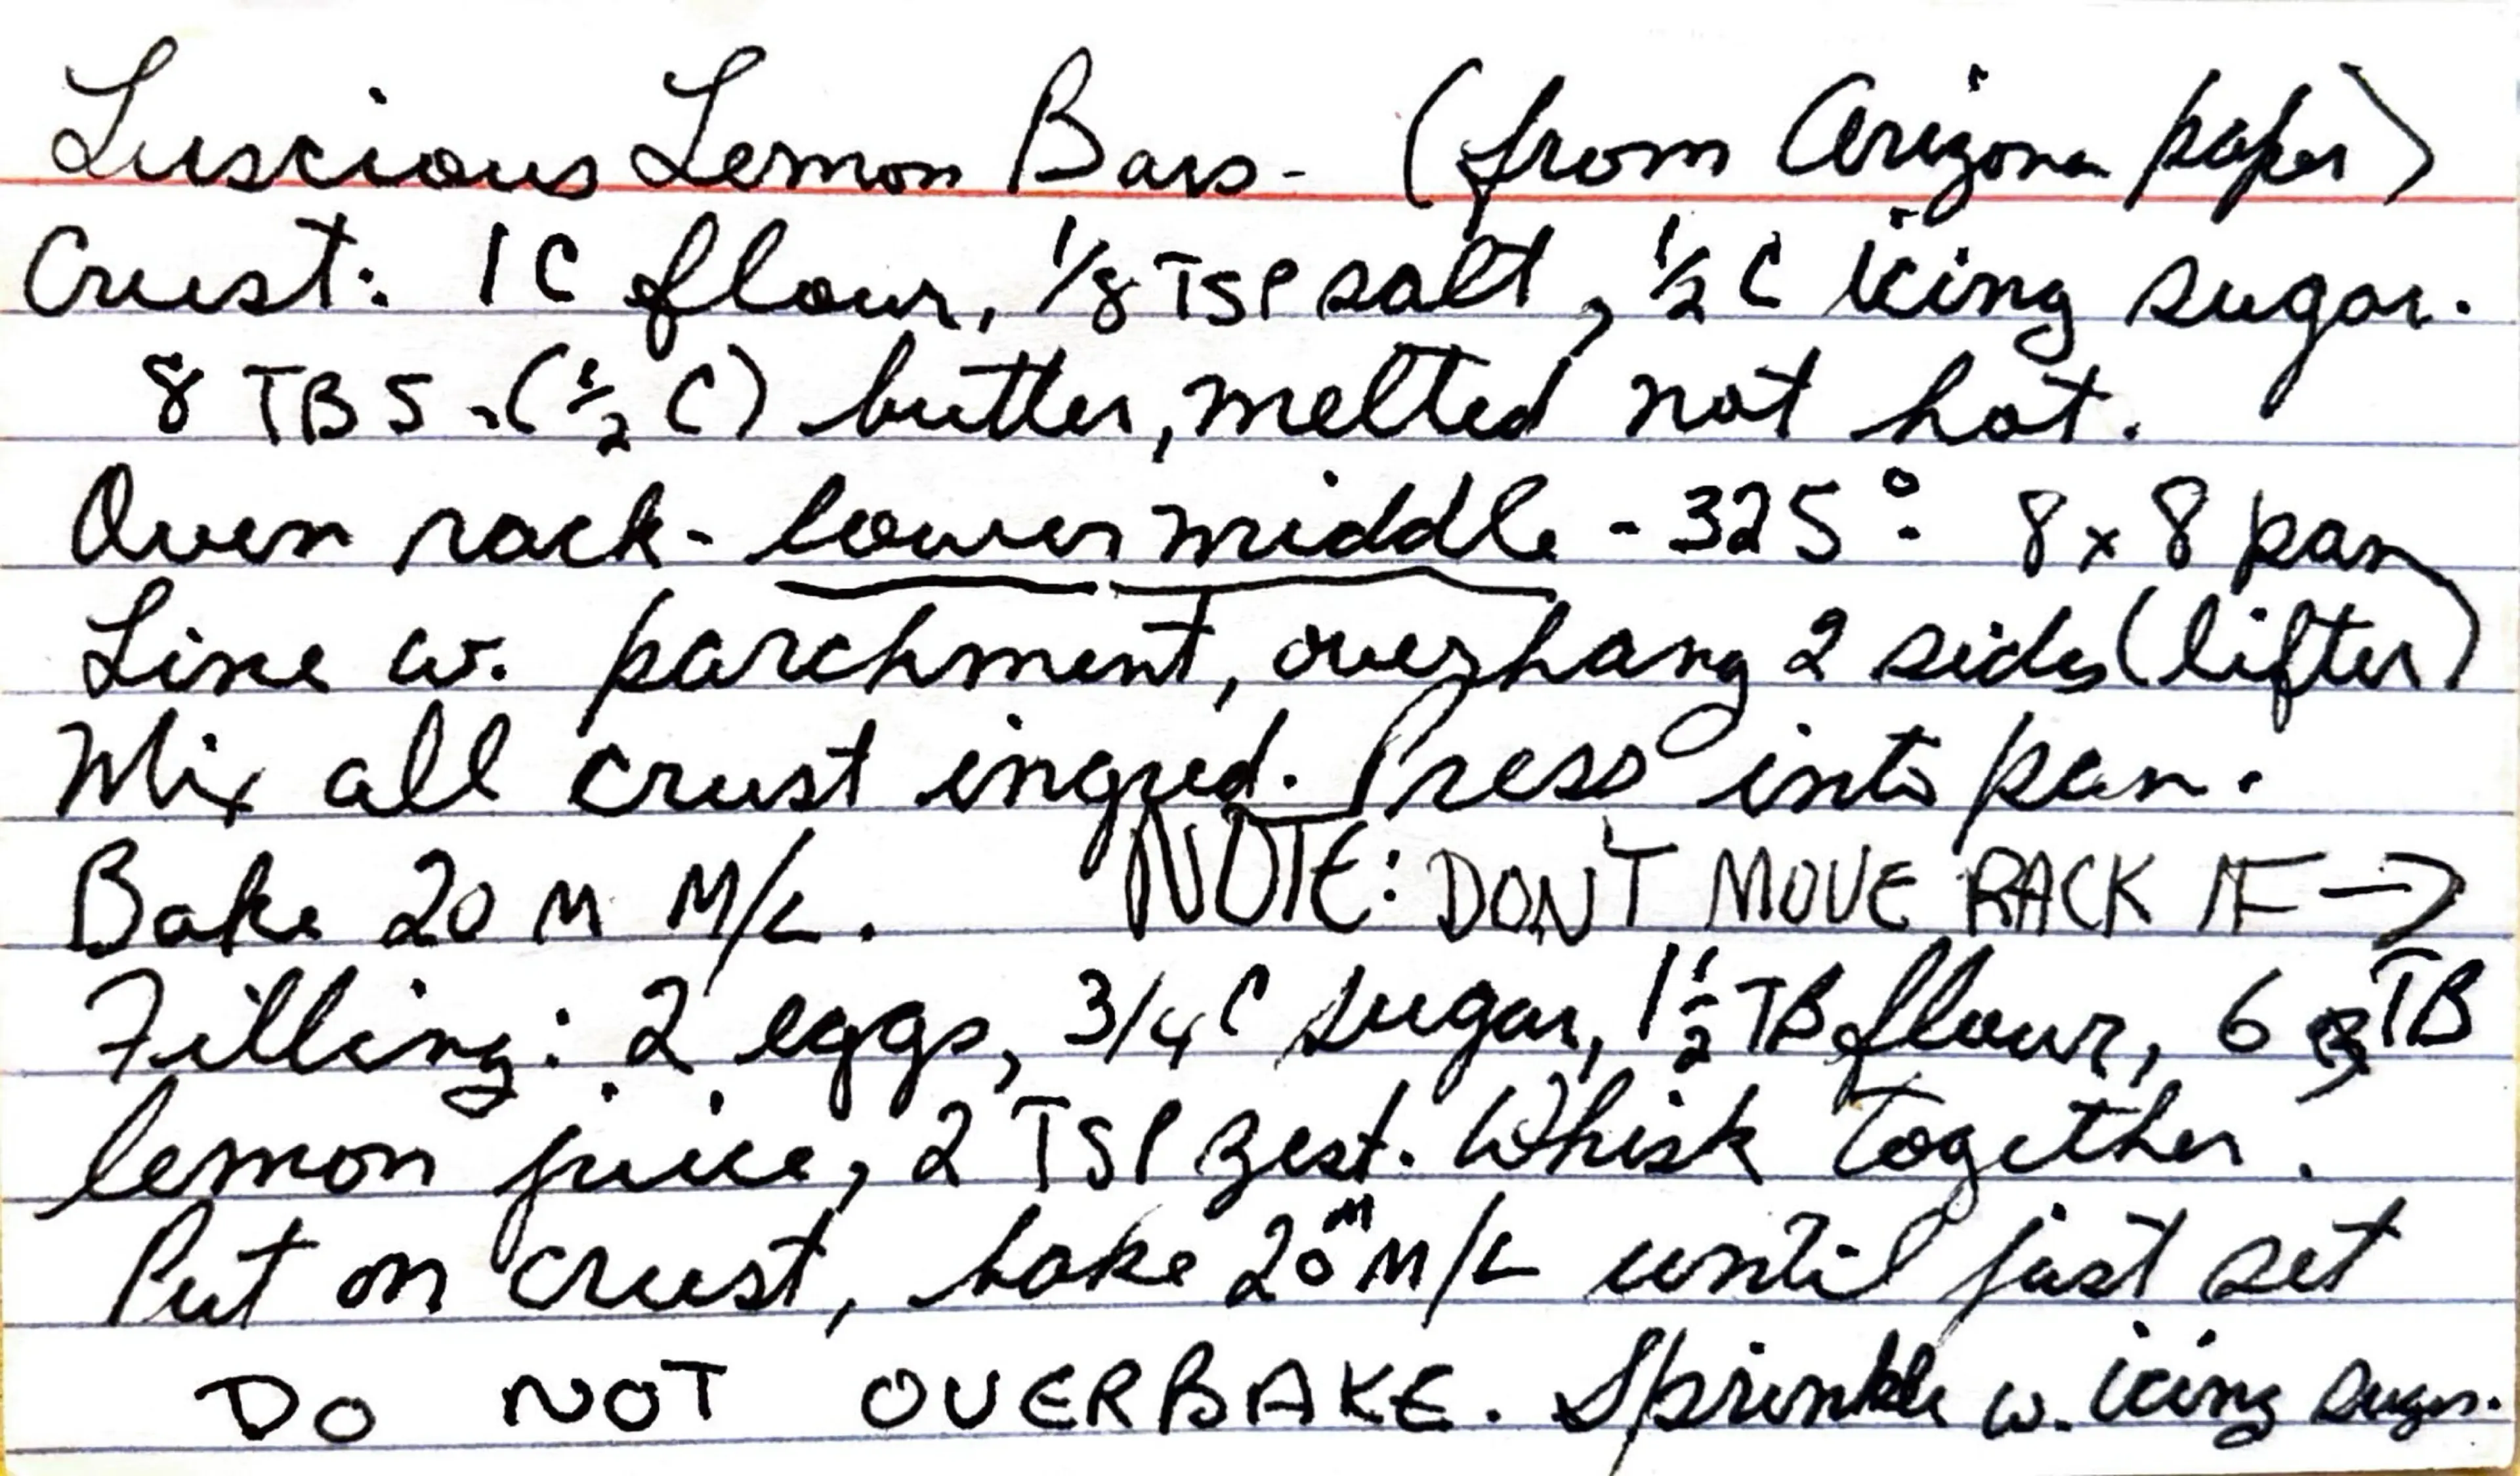 Luscious Lemon Bars - (from Arizona paper)
Crust: 1 C flour, 1/8 TSP salt, 1/2 C icing sugar.
8 TBS. (1/2 C) butter, melted not hot.
Oven rack - lower middle - 325°. 8 x 8 pan
Line w. parchment, overhang 2 sides (lifter)
Mix all crust ingred. Press into pan.
Bake 20 M M/L. NOTE: DON'T MOVE RACK IF →
Filling: 2 eggs, 3/4 C sugar, 1 1/2 TB flour, 6 TB
lemon juice, 2 TSP zest. Whisk together.
Put on crust, bake 20 M M/L until just set
DO NOT OVERBAKE. Sprinkle w. icing sugar.